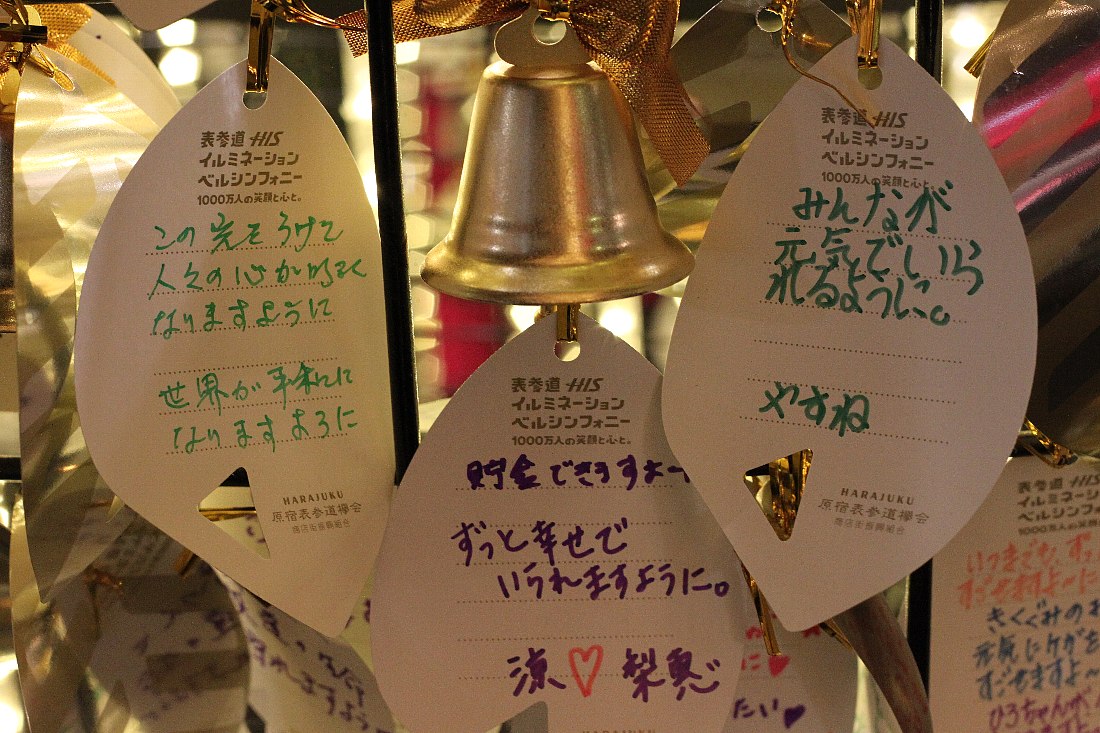 表参道 HIS
イルミネーション
ベルシンフォニー
1000万人の笑顔と心と。
この光をうけて
人々の心が明るく
なりますように
世界が平和に
なりますように
HARAJUKU
原宿表参道欅会
商店街振興組合
表参道 HIS
イルミネーション
ベルシンフォニー
1000万人の笑顔と心と。
貯金できますよー
ずっと幸せで
いられますように。
涼♡梨恵
表参道 HIS
イルミネーション
ベルシンフォニー
1000万人の笑顔と心と。
みんなが
元気でいら
れるように。
やすね
HARAJUKU
原宿表参道欅会
商店街振興組合
表参道 HIS
イルミネーション
ベルシンフォニー
1000万人の笑顔と
いつまでも ずっ
きくぐみのお
元気にケガを
すごせますよ〜
ひろちゃんが